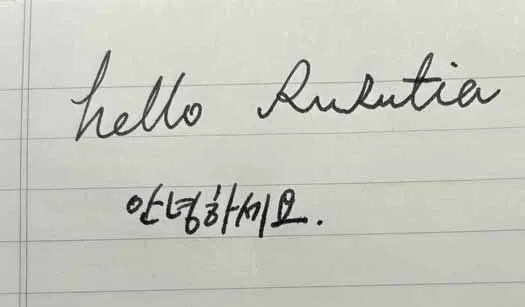 hello Rukutia
안녕하세요.